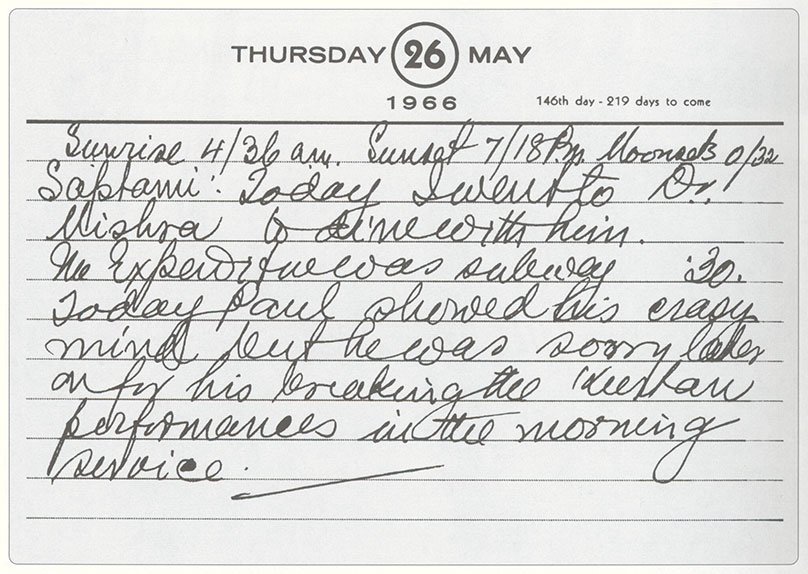 THURSDAY 26 MAY
1966 146th day - 219 days to come
Sunrise 4/36 a.m. Sunset 7/18 P.m. Moonsets 0/32
Saptami. Today I went to Dr.
Mishra to dine with him.
The Expenditure was subway .30.
Today Paul showed his crazy
mind but he was sorry later
on for his breaking the 'Keertan
performances in the morning
service.